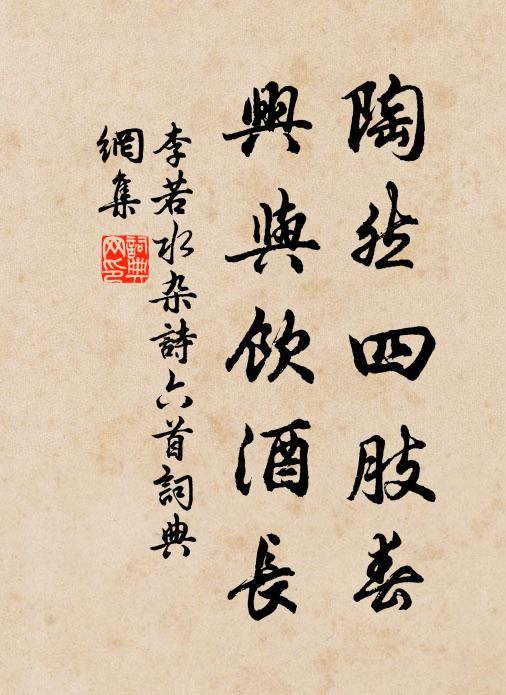 陶然四肢春
興與飲酒長
李若水杂詩六首詞典
網集
詞典网印